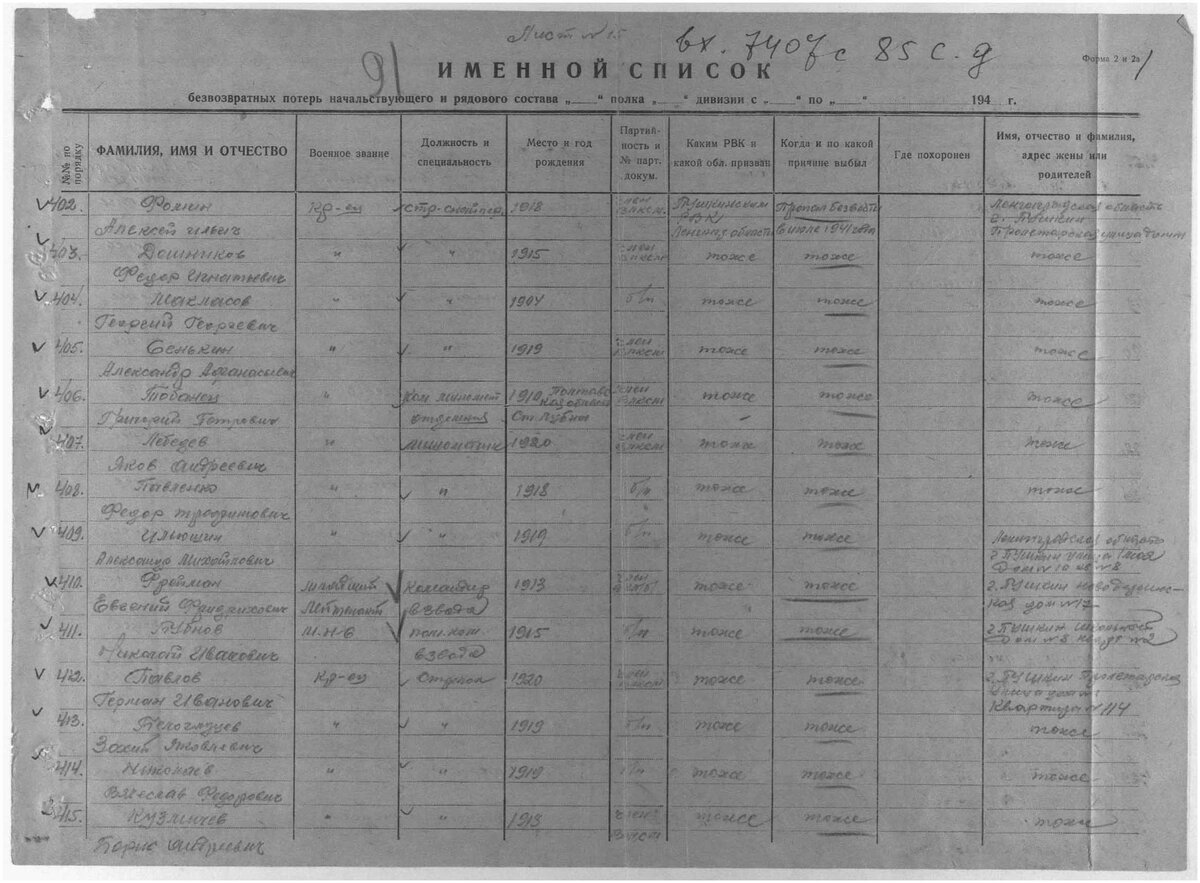 Лист №15
вх. 7407с 85 с.д
91
Форма 2 и 2а
1
ИМЕННОЙ СПИСОК
безвозвратных потерь начальствующего и рядового состава „ “ полка „ “ дивизии с „ “ по „ “ 194 г.
№№ по порядку
ФАМИЛИЯ, ИМЯ И ОТЧЕСТВО
Военное звание
Должность и специальность
Место и год рождения
Партийность и № парт. докум.
Каким РВК и какой обл. призван
Когда и по какой причине выбыл
Где похоронен
Имя, отчество и фамилия, адрес жены или родителей
402. Фомин Кр-ец стр-снайпер 1918 член Пушкинским Пропал безвести Ленинградская область
Алексей Ильич ВЛКСМ РВК в июле 1941 года г. Пушкин
403. Дошников " " 1915 член ВЛКСМ тоже тоже тоже
Федор Игнатьевич
404. Макласов " " 1904 б/п тоже тоже тоже
Георгий Георгиевич
405. Сенькин " " 1919 член ВЛКСМ тоже тоже тоже
Александр Афанасьевич
406. " Ком. миномет 1910 член ВЛКСМ тоже тоже тоже
Григорий Петрович отделения Ст. Лубны
407. Лебедев " минометчик 1920 член ВЛКСМ тоже тоже тоже
Яков Андреевич
408. Павленко " " 1918 б/п тоже тоже тоже
Федор Трофимович
409. Ильюшин " " 1919 б/п тоже тоже Ленинградская область
Александр Михайлович г. Пушкин улица
410. Фрейман младший Командир 1913 член тоже тоже г. Пушкин
Евгений Фридрихович Лейтенант взвода дом №17
411. Бубнов пом. ком. 1915 б/п тоже тоже г. Пушкин
Николай Иванович взвода Дом №8 №2
412. Павлов Кр-ец Стрелок 1920 член ВЛКСМ тоже тоже г. Пушкин Пролетарская
Герман Иванович Квартира №114
413. " " 1919 б/п тоже тоже тоже
Яковлевич
414. Николаев " " 1919 б/п тоже тоже тоже
Вячеслав Федорович
415. Кузмичев " " 1913 член тоже тоже тоже
Борис Андреевич